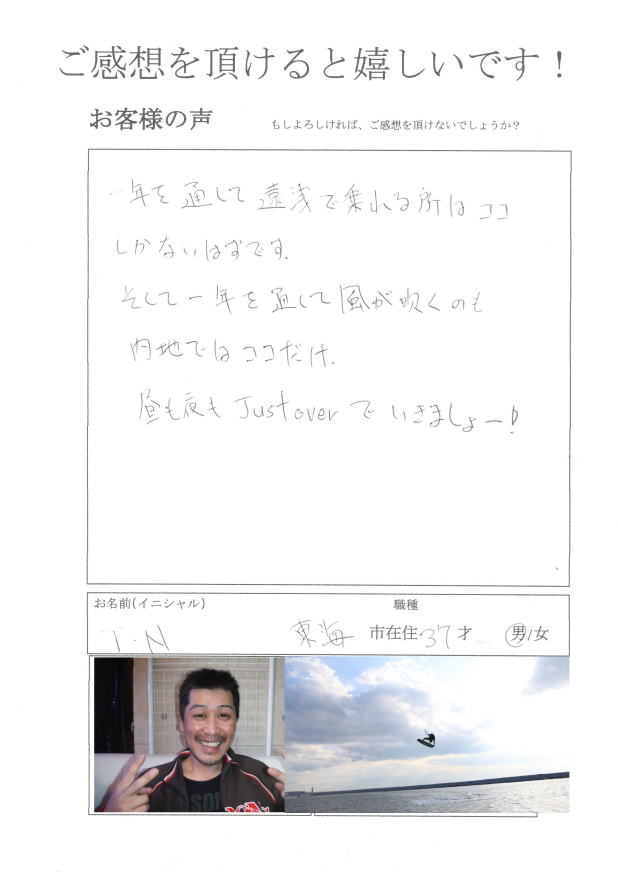 ご感想を頂けると嬉しいです！
お客様の声
もしよろしければ、ご感想を頂けないでしょうか？
一年を通して遠浅で乗れる所はココ
しかないはずです。
そして一年を通して風が吹くのも
内地ではココだけ。
昼も夜も Justoverで いきましょー！
お名前(イニシャル)
職種
T.N
東海 市在住 37才
男/女
SON